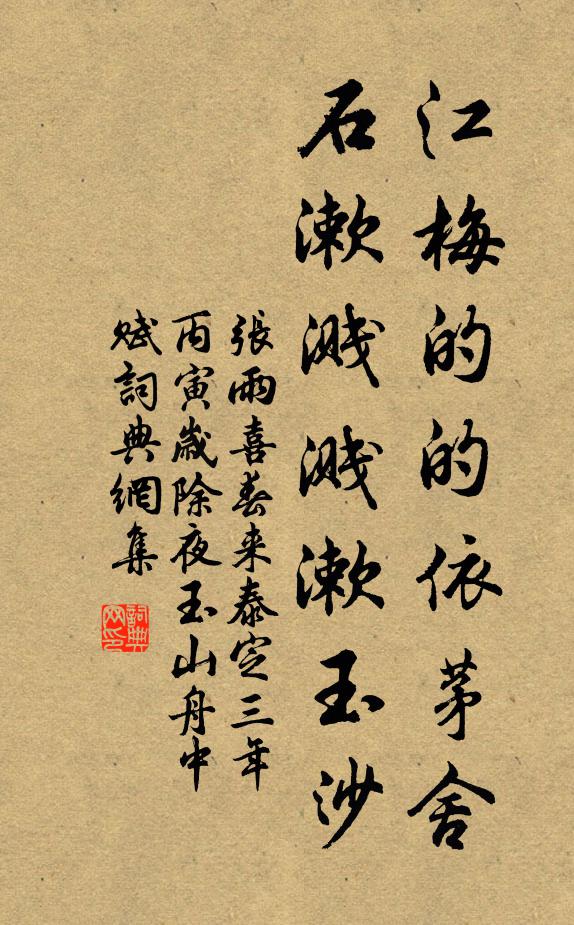 江梅的的依茅舍
石漱濺濺漱玉沙
張雨喜春来泰定三年
丙寅歲除夜玉山舟中
賦詞典網集
詞典网印